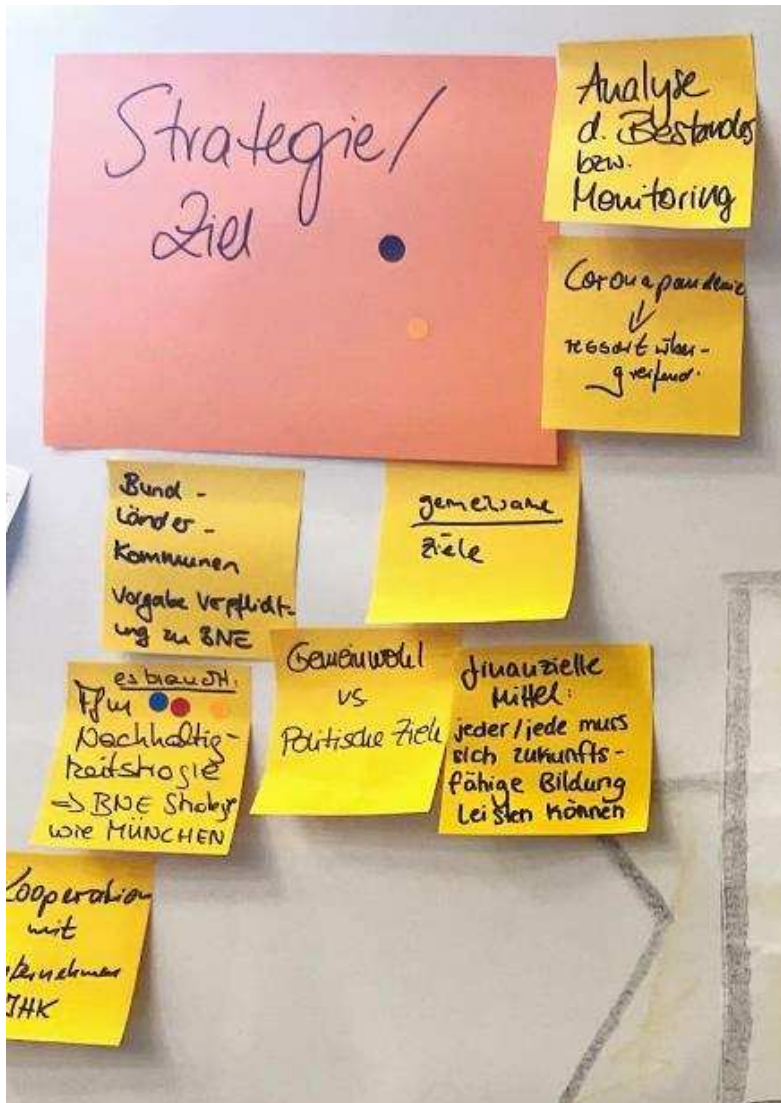 Strategie/
Ziel
Analyse
d. Bestandes
bzw.
Monitoring
Coronapandemie
ressortüber-
greifend.
Bund -
Länder -
Kommunen
Vorgabe Verpflicht-
ung zu BNE
gemeinsame
Ziele
es braucht:
Ffm
Nachhaltig-
keitstragie
=> BNE Strategie
wie MÜNCHEN
Gemeinwohl
vs
Politische Ziele
finanzielle
Mittel:
jeder/jede muss
sich zukunfts-
fähige Bildung
leisten können
Kooperation
mit
ternehmen
IHK